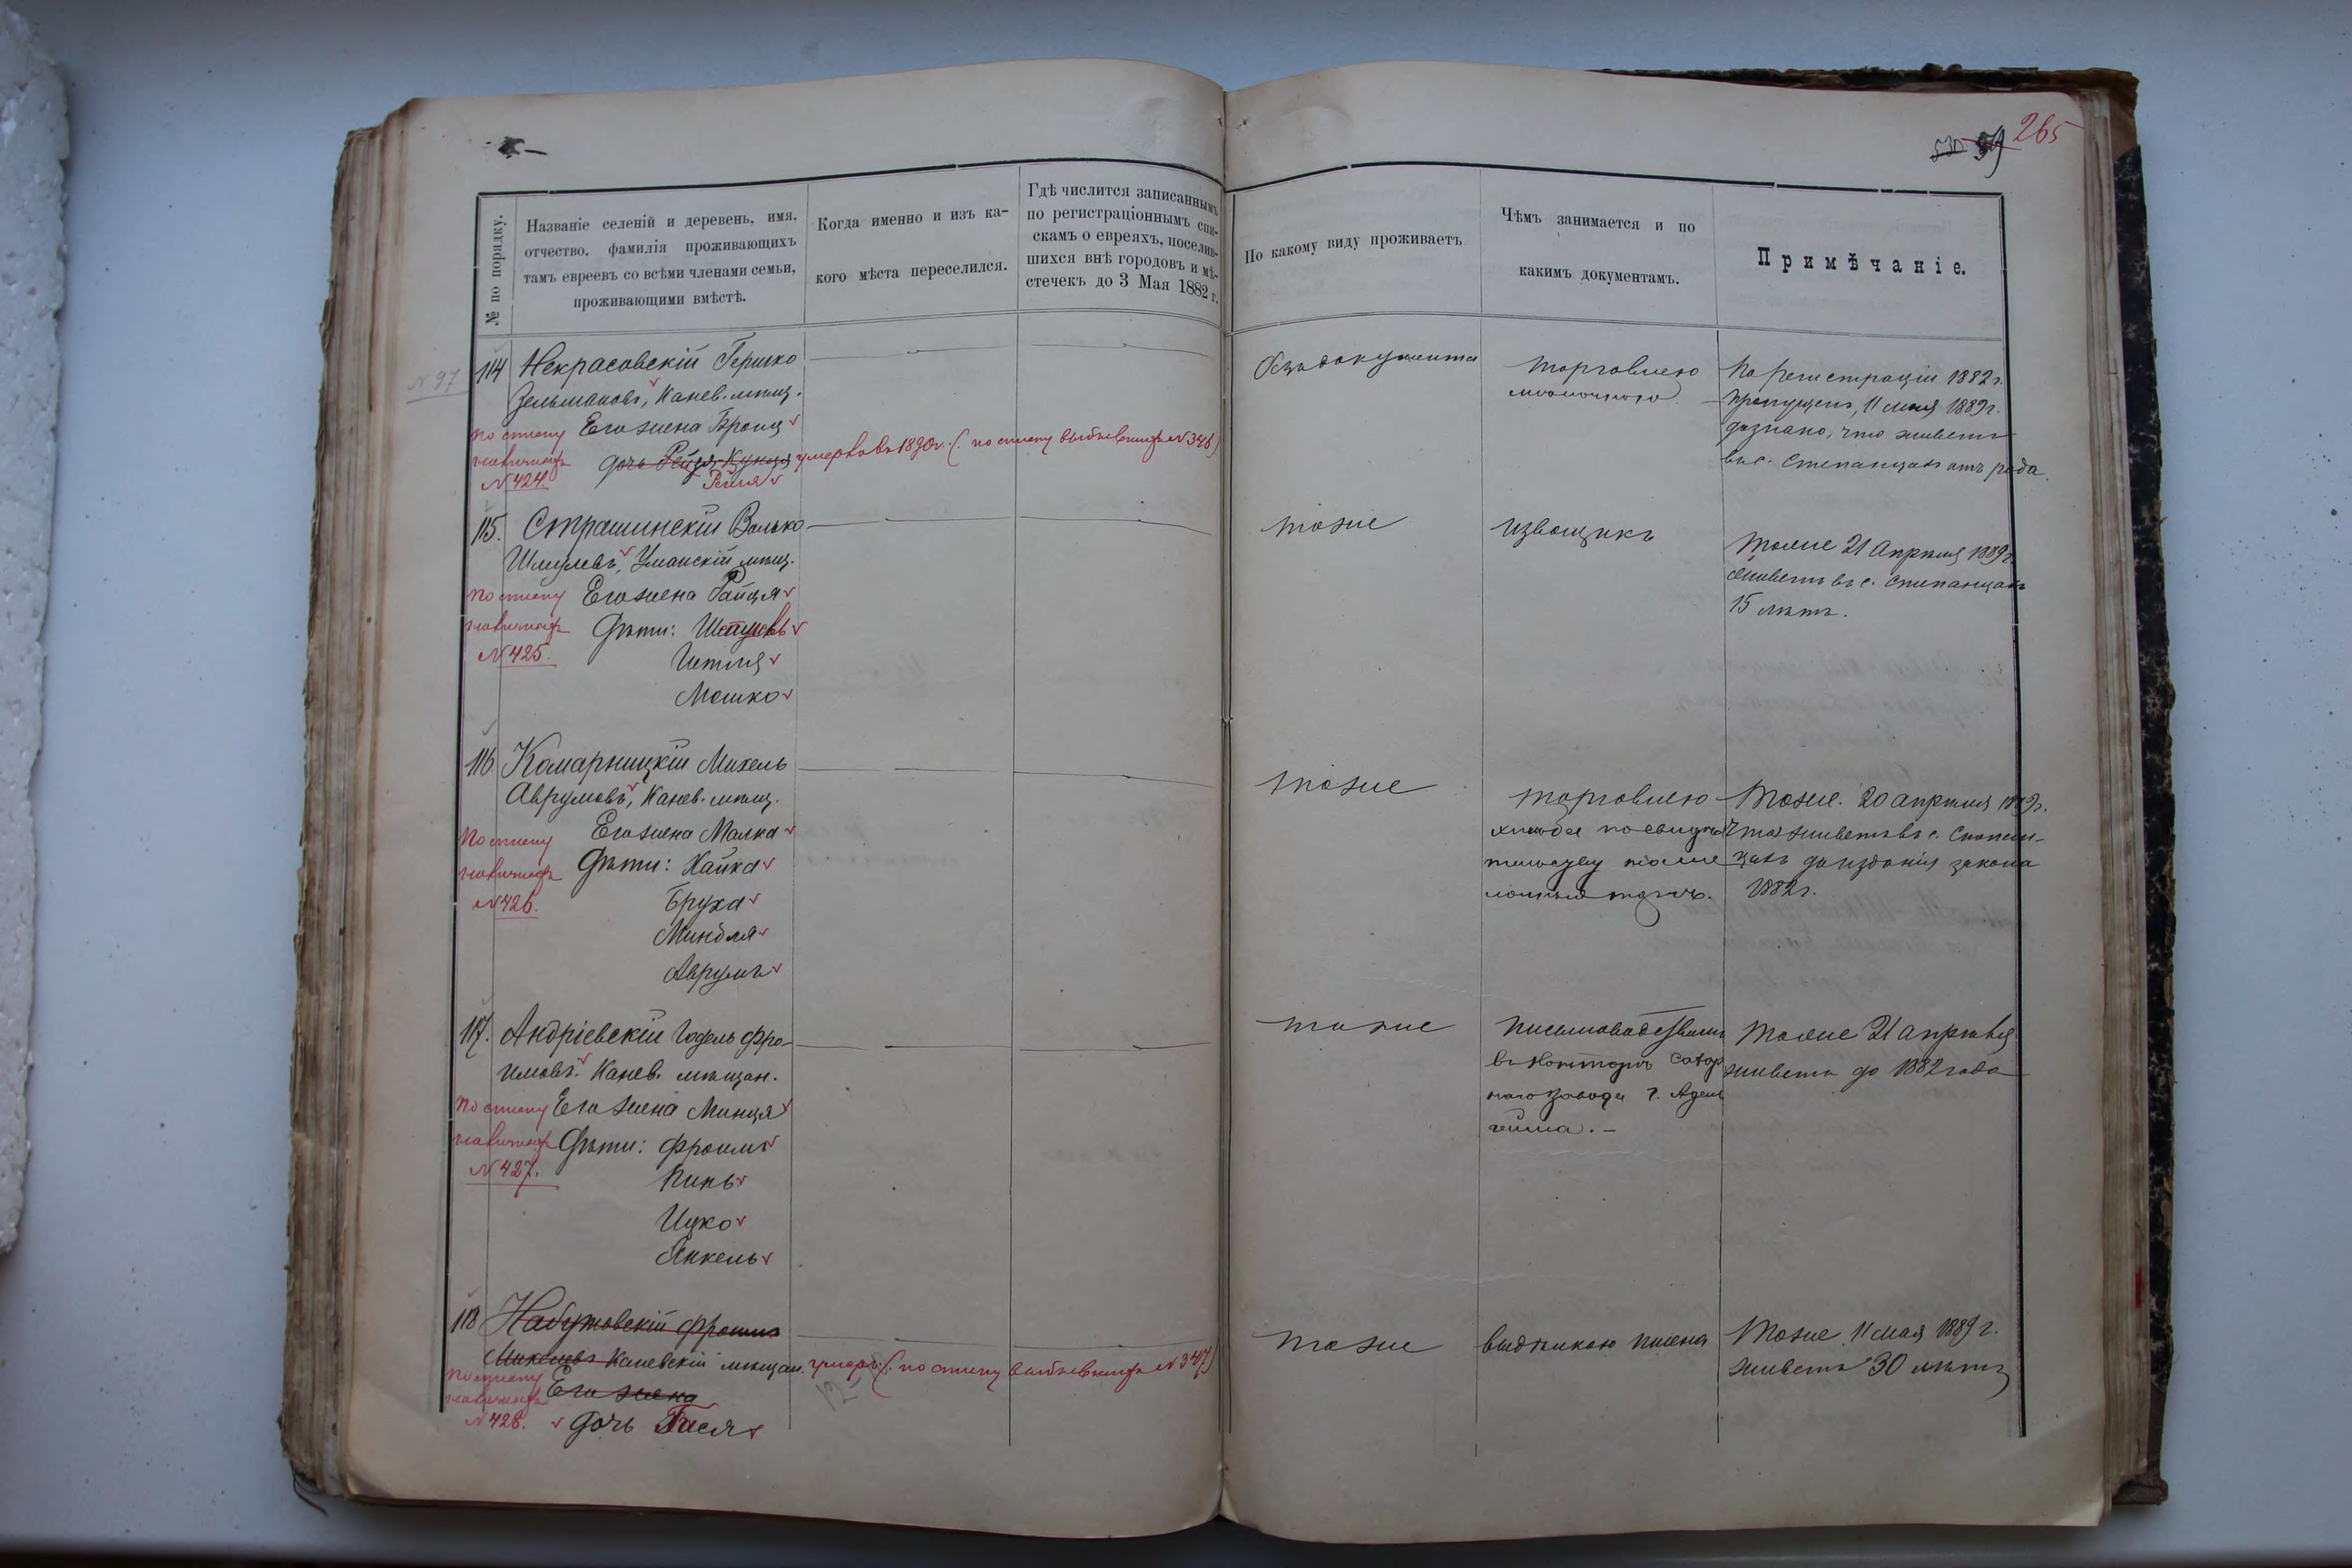 265
530
59
№ по порядку.
Названіе селеній и деревень, имя,
отчество, фамилія проживающихъ
тамъ евреевъ со всѣми членами семьи,
проживающими вмѣстѣ.
Когда именно и изъ ка-
кого мѣста переселился.
Гдѣ числится записаннымъ
по регистраціоннымъ спи-
скамъ о евреяхъ, поселив-
шихся внѣ городовъ и мѣ-
стечекъ до 3 Мая 1882 г.
По какому виду проживаетъ
Чѣмъ занимается и по
какимъ документамъ.
Примѣчаніе.
N 97
114 Некрасовскій Гершко
Зельмановъ, Канев. мѣщ.
По списку Его жена Броня
N 424.
дочь
умерла въ 1890 г. (по списку выбывшихъ N 346)
Рейзя
Безъ документа
торговлею
По регистраціи 1882 г.
пропущенъ, 11 мая 1889 г.
дознано, что живетъ
въ с. Степанцахъ отъ рода.
115. Страшинскій Волько
Шмулевъ, Уманскій мѣщ.
По списку Его жена Райця
Дѣти:
N 425.
Мошко
тоже
извощикъ
Тоже 21 Апрѣля 1889 г.
живетъ въ с. Степанцахъ
15 лѣтъ.
116 Комарницкій Михель
Аврумовъ, Канев. мѣщ.
По списку Его жена Малка
Дѣти: Хайка
N 426. Бруха
Миндля
Аврумъ
тоже
торговлею
хлѣба по свидѣ-
тельству
Тоже. 20 апрѣля 1889 г.
что живетъ въ с. Степан-
цахъ до изданія закона
1882 г.
117. Андріевскій Годель Фро-
имовъ. Канев. мѣщан.
По списку Его жена Минця
Дѣти: Фроимъ
N 427. Пинь
Ицко
Янкель
тоже
письмоводствомъ
въ конторѣ сахар
наго завода г.
Тоже 21 апрѣля
живетъ до 1882 года
118 Набутовскій Фроимъ
Михелевъ Каневскій мѣщан. умеръ (по списку выбывшихъ N 347)
По списку Его жена
N 428. дочь Бася
12
тоже
выдѣлкою пшена
Тоже 11 мая 1889 г.
живетъ 30 лѣтъ